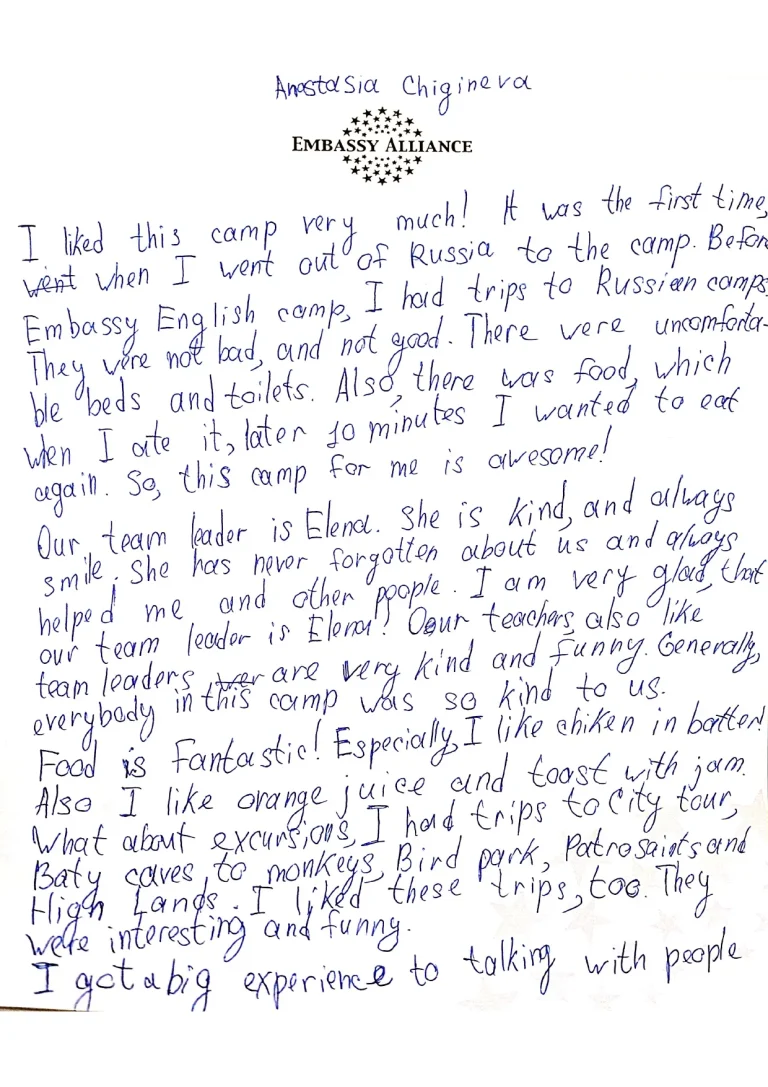 Anastasia Chigineva
EMBASSY ALLIANCE
I liked this camp very much! It was the first time,
went when I went out of Russia to the camp. Before
Embassy English camp, I had trips to Russian camps.
They were not bad, and not good. There were uncomforta-
ble beds and toilets. Also, there was food, which
when I ate it, later 10 minutes I wanted to eat
again. So, this camp for me is awesome!
Our team leader is Elena. She is kind, and always
smile. She has never forgotten about us and always
helped me and other people. I am very glad, that
our team leader is Elena! Our teachers, also like
team leaders, wer are very kind and funny. Generally,
everybody in this camp was so kind to us.
Food is fantastic! Especially, I like chiken in batter!
Also I like orange juice and toast with jam.
What about excursions, I had trips to City tour,
Baty caves, to monkeys, Bird park, Patrosaints and
High Lands. I liked these trips, too. They
were interesting and funny.
I got a big experience to talking with people